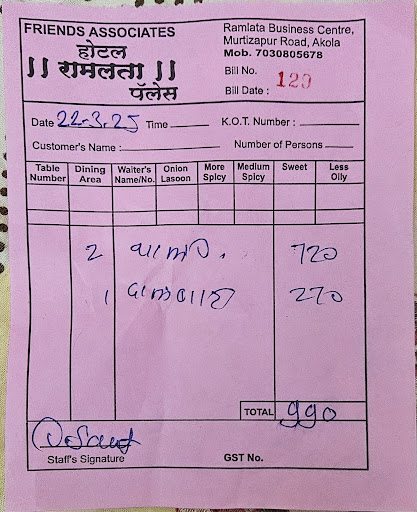 FRIENDS ASSOCIATES
होटल
|| रामलता ||
पॅलेस
Ramlata Business Centre,
Murtizapur Road, Akola
Mob. 7030805678
Bill No. 129
Bill Date :
Date 22-3.25 Time K.O.T. Number :
Customer's Name : Number of Persons
Table Number Dining Area Waiter's Name/No. Onion Lasoon More Spicy Medium Spicy Sweet Less Oily
2 720
1 270
TOTAL 990
Staff's Signature GST No.